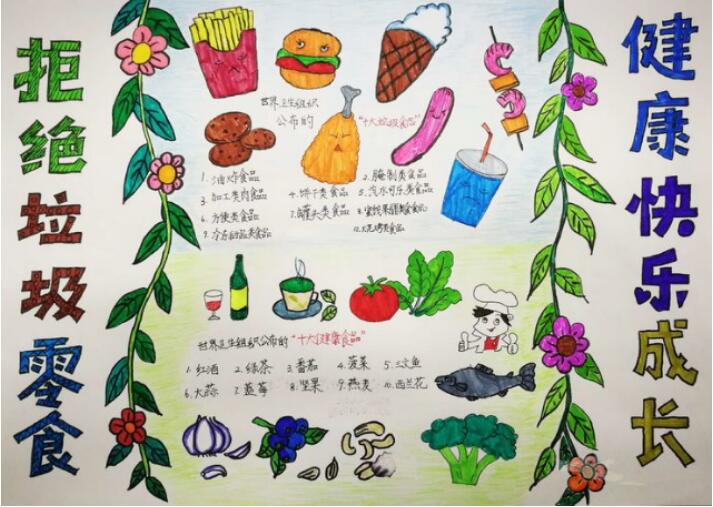 拒绝垃圾零食
世界卫生组织
公布的 "十大垃圾食品"
1. 油炸食品 2. 腌制类食品
3. 加工类肉食品 4. 饼干类食品 5. 汽水可乐类食品
6. 方便类食品 7. 罐头类食品 8. 蜜饯果脯类食品
9. 冷冻甜品类食品 10. 烧烤类食品
世界卫生组织公布的 "十大健康食品"
1. 红酒 2. 绿茶 3. 番茄 4. 菠菜 5. 三文鱼
6. 大蒜 7. 蓝莓 8. 坚果 9. 燕麦 10. 西兰花
健康快乐成长